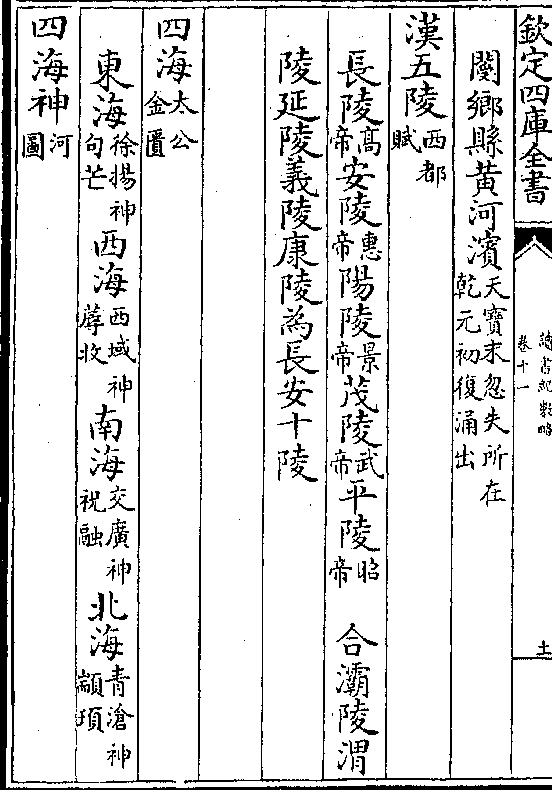 欽定四庫全書
讀書紀數略
卷十一
土
閿鄉縣黃河濱天寳末忽失所在
乾元初復涌出
漢五陵西都
賦
長陵高
帝安陵惠
帝陽陵景
帝茂陵武
帝平陵昭
帝　合灞陵渭
陵延陵義陵康陵為長安十陵
四海太公
金匱
東海徐揚神
句芒西海西域神
蓐收南海交廣神
祝融北海青滄神
顓頊
四海神河
圖